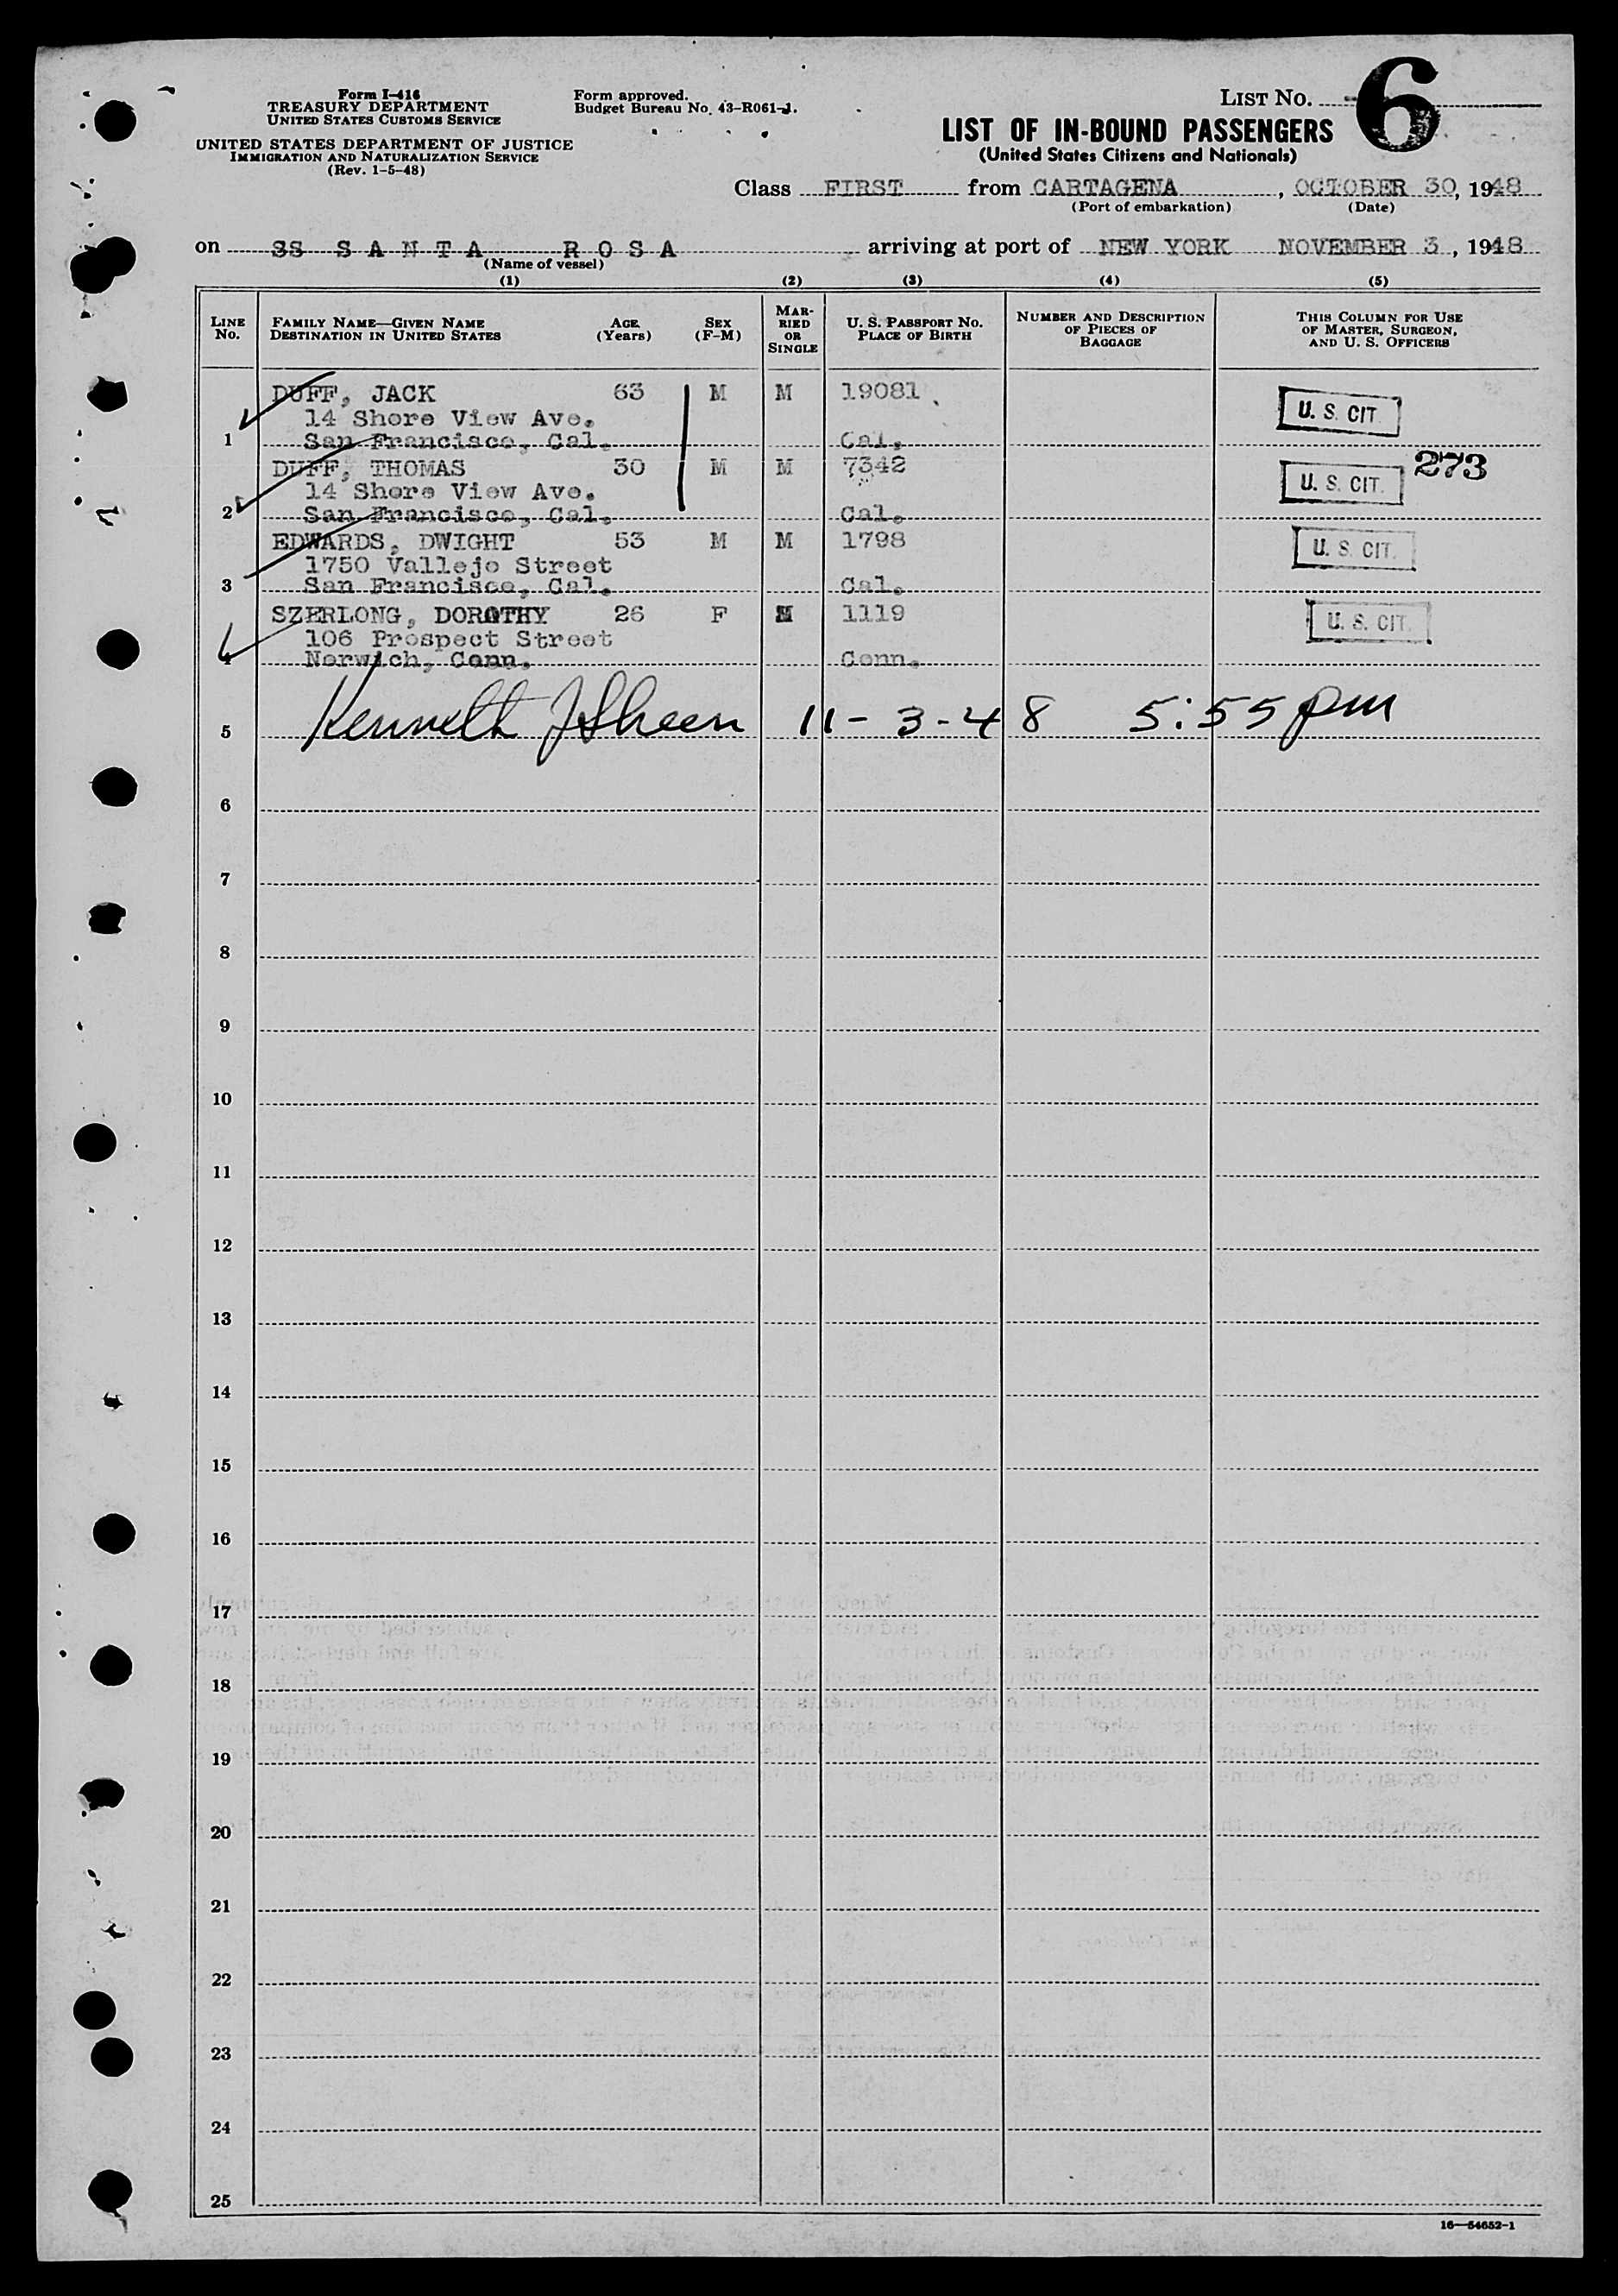 Form I-416
TREASURY DEPARTMENT
UNITED STATES CUSTOMS SERVICE
UNITED STATES DEPARTMENT OF JUSTICE
IMMIGRATION AND NATURALIZATION SERVICE
(Rev. 1-5-48)
Form approved.
Budget Bureau No. 43-R061-1.
LIST NO. 6
LIST OF IN-BOUND PASSENGERS
(United States Citizens and Nationals)
Class FIRST from CARTAGENA, OCTOBER 30, 1948
(Port of embarkation) (Date)
on SS SANTA ROSA arriving at port of NEW YORK NOVEMBER 3, 1948
(Name of vessel)
(1) (2) (3) (4) (5)
LINE NO. FAMILY NAME—GIVEN NAME DESTINATION IN UNITED STATES AGE (Years) SEX (F-M) MARRIED OR SINGLE U. S. PASSPORT NO. PLACE OF BIRTH NUMBER AND DESCRIPTION OF PIECES OF BAGGAGE THIS COLUMN FOR USE OF MASTER, SURGEON, AND U. S. OFFICERS
DUFF, JACK 63 M M 19081
14 Shore View Ave. U. S. CIT.
1 San Francisco, Cal. Cal.
DUFF, THOMAS 30 M M 7342 273
14 Shore View Ave. U. S. CIT.
2 San Francisco, Cal. Cal.
EDWARDS, DWIGHT 53 M M 1798 U. S. CIT.
1750 Vallejo Street
3 San Francisco, Cal. Cal.
SZERLONG, DOROTHY 26 F M 1119 U. S. CIT.
106 Prospect Street
4 Norwich, Conn. Conn.
5 Kenneth J Sheen 11-3-48 5:55 pm
6
7
8
9
10
11
12
13
14
15
16
17
18
19
20
21
22
23
24
25
16—54652-1